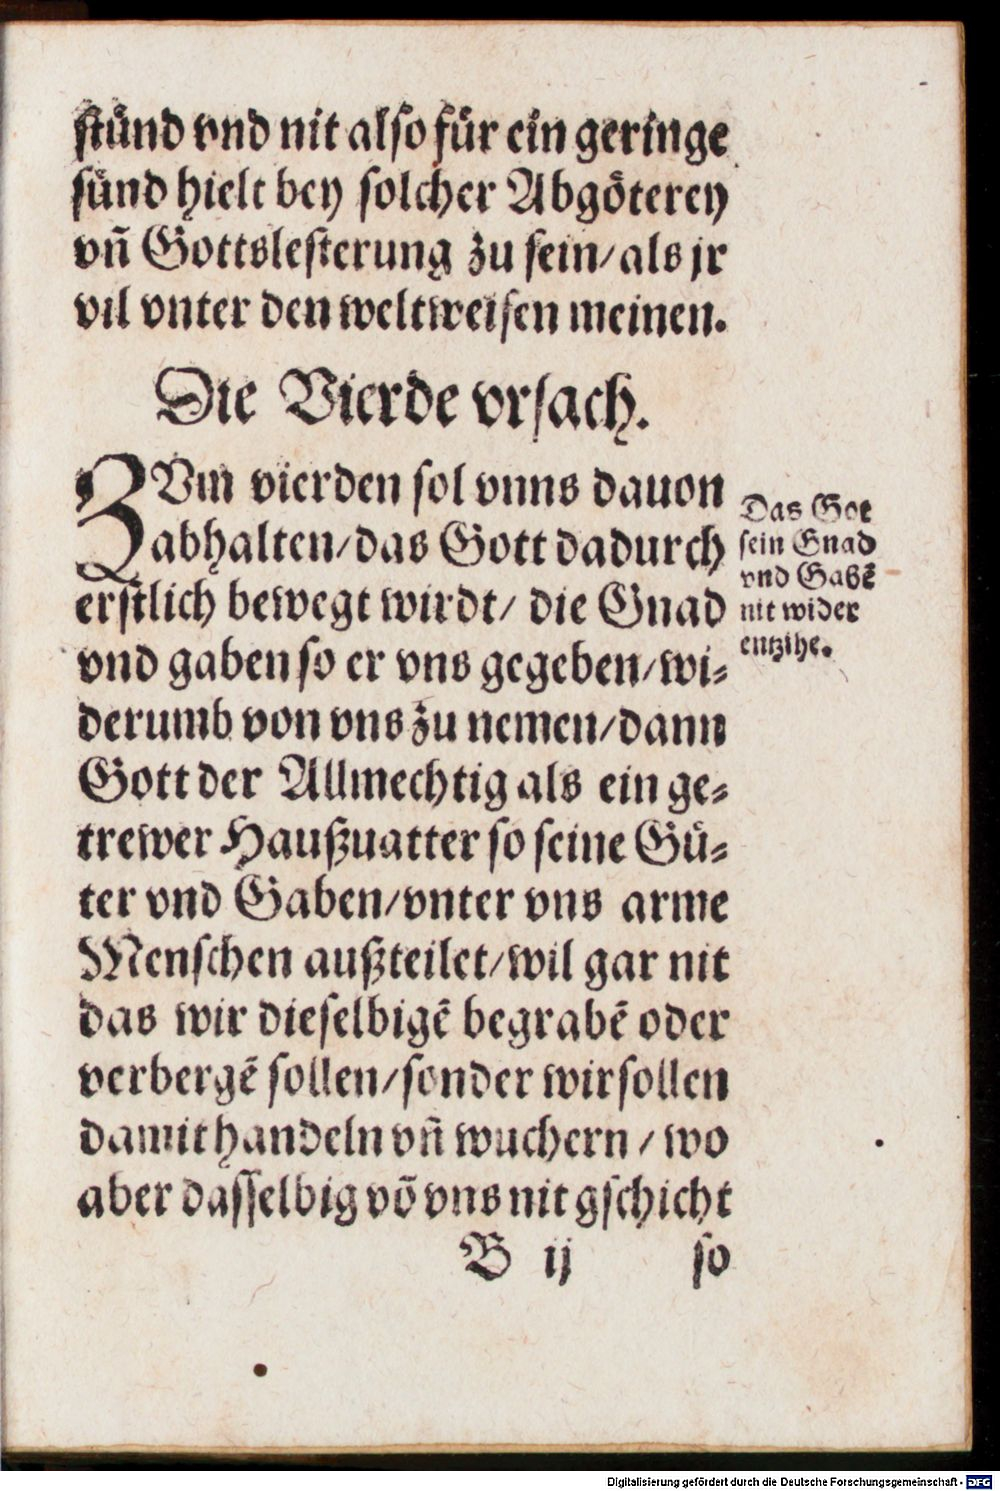 stünd vnd nit also für ein geringe
sünd hielt bey solcher Abgöterey
vñ Gottslesterung zu sein/als jr
vil vnter den weltweisen meinen.
Die Vierde vrsach.
ZVm vierden sol vnns dauon
abhalten/das Gott dadurch
erstlich bewegt wirdt/ die Gnad
vnd gaben so er vns gegeben/wi⸗
derumb von vns zu nemen/dann
Gott der Allmechtig als ein ge⸗
trewer Haußuatter so seine Gü⸗
ter vnd Gaben/vnter vns arme
Menschen außteilet/wil gar nit
das wir dieselbigē begrabē oder
verbergē sollen/sonder wir sollen
damit handeln vñ wuchern / wo
aber dasselbig vō vns nit gschicht
B ij so
Das Got
sein Gnad
vnd Gabē
nit wider
entzihe.
Digitalisierung gefördert durch die Deutsche Forschungsgemeinschaft - DFG